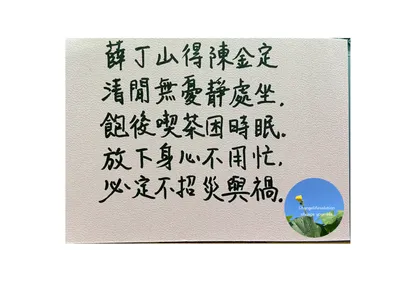 薛丁山得陳金定
清閒無憂靜處坐.
飽後喫茶困時眠.
放下身心不用忙,
必定不招災與禍.